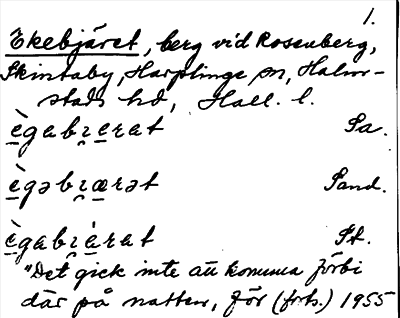 1.
Ekebjäret, berg vid Rosenberg,
Skintaby, Harplinge sn, Halm-
stads hd, Hall. l.
ègabi̯erat Sa.
ègəbi̯ærət Sand.
ègabi̯èrat St.
"Det gick inte att komma förbi
där på natten, för (forts.) 1955